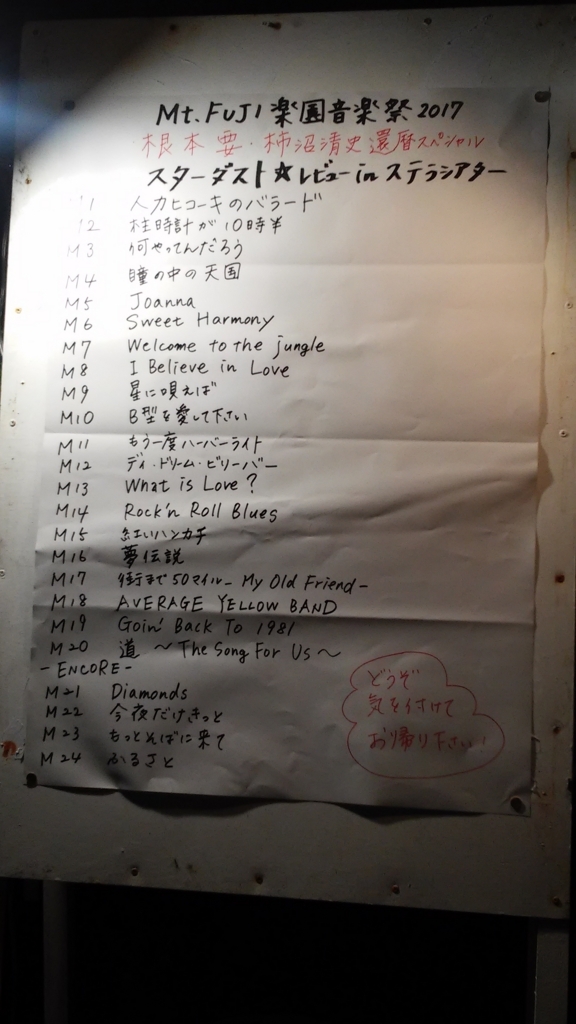 Mt.FUJI楽園音楽祭2017
根本要・柿沼清史還暦スペシャル
スターダスト☆レビュー in ステラシアター
M1 人力ヒコーキのバラード
M2 柱時計が10時半
M3 何やってんだろう
M4 瞳の中の天国
M5 Joanna
M6 Sweet Harmony
M7 Welcome to the jungle
M8 I Believe in Love
M9 星に唄えば
M10 B型を愛して下さい
M11 もう一度ハーバーライト
M12 デイ・ドリーム・ビリーバー
M13 What is Love?
M14 Rock'n Roll Blues
M15 紅いハンカチ
M16 夢伝説
M17 街まで50マイル -My Old Friend-
M18 AVERAGE YELLOW BAND
M19 Goin' Back To 1981
M20 道 ～The Song For Us～
-ENCORE-
M21 Diamonds
M22 今夜だけきっと
M23 もっとそばに来て
M24 ふるさと
どうぞ
気を付けて
お帰り下さい!